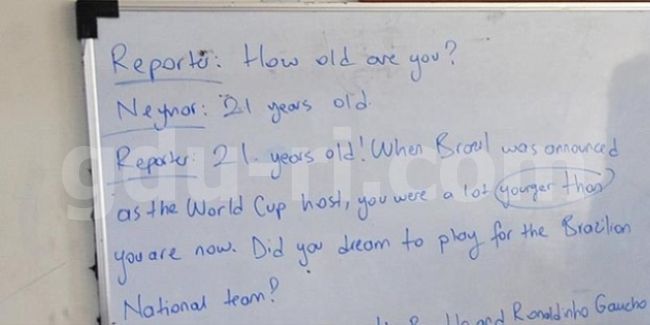 Reporter: How old are you?
Neymar: 21 years old.
Reporter: 21 years old! When Brazil was announced
as the World Cup host, you were a lot younger than
you are now. Did you dream to play for the Brazilian
National team?
and Ronaldinho Gaucho
gdu-ri.com